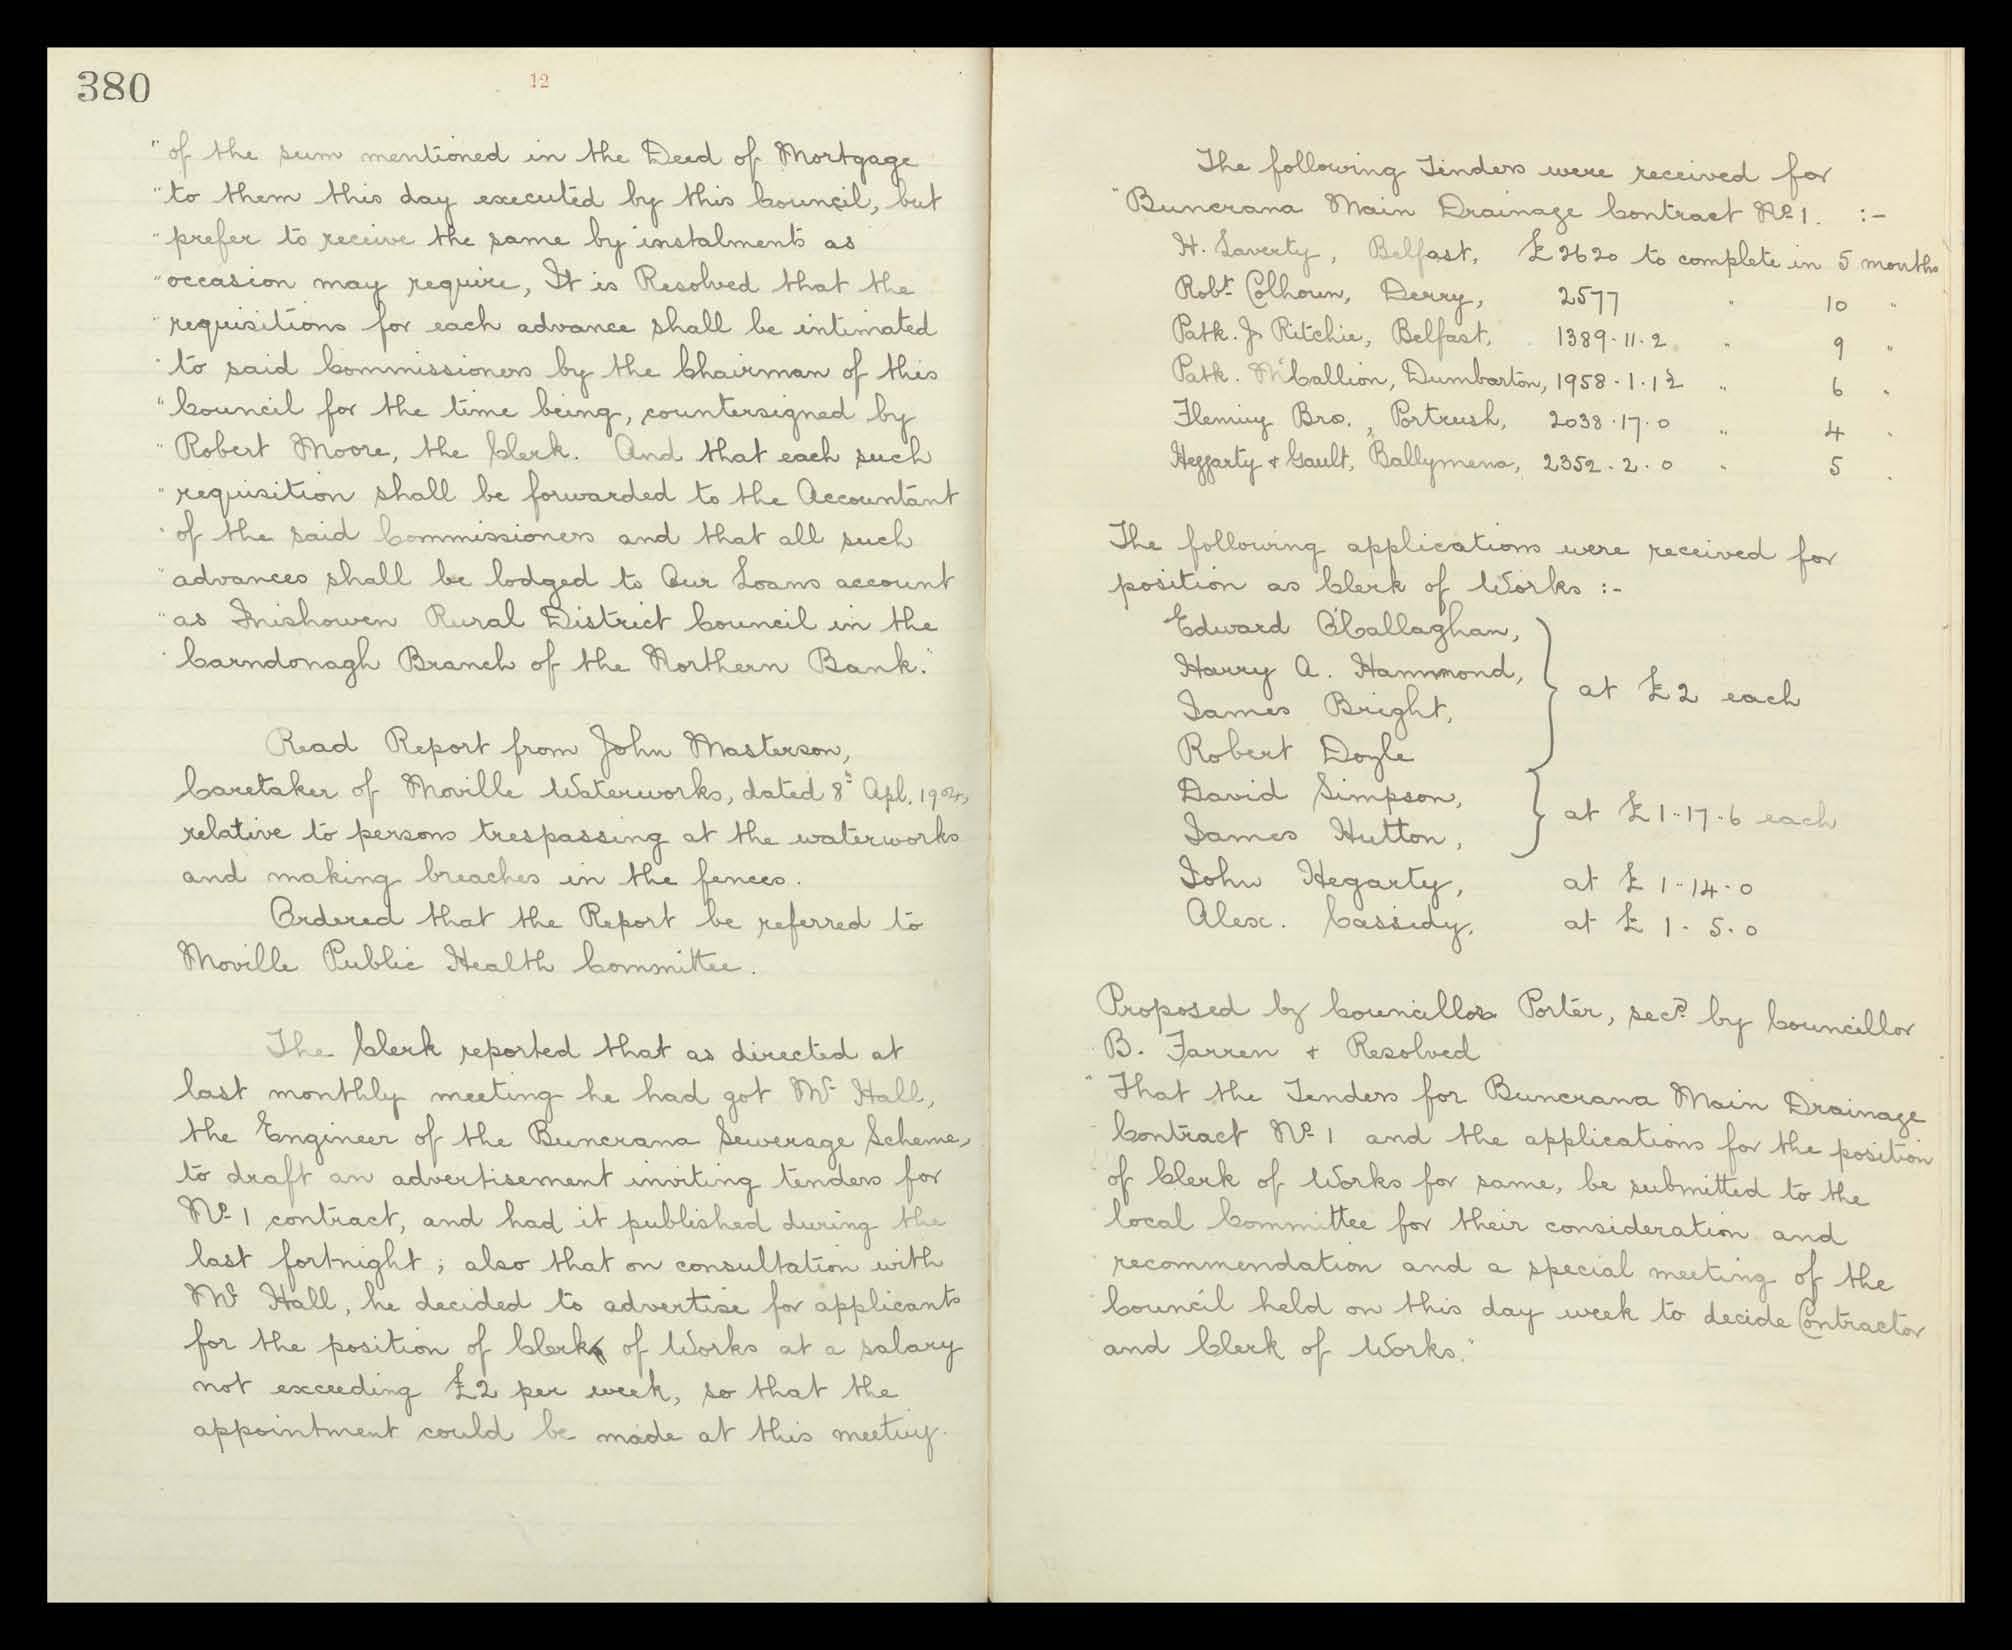 380
12
"of the sum mentioned in the Deed of Mortgage
"to them this day executed by this Council, but
"prefer to receive the same by instalments as
"occasion may require, It is Resolved that the
"requisitions for each advance shall be intimated
"to said Commissioners by the Chairman of this
"Council for the time being, countersigned by
"Robert Moore, the Clerk. And that each such
"requisition shall be forwarded to the Accountant
"of the said Commissioners and that all such
"advances shall be lodged to Our Loans account
"as Inishowen Rural District Council in the
"Carndonagh Branch of the Northern Bank."
Read Report from John Masterson,
Caretaker of Moville Waterworks, dated 8th Apl. 1904,
relative to persons trespassing at the waterworks
and making breaches in the fences.
Ordered that the Report be referred to
Moville Public Health Committee.
The Clerk reported that as directed at
last monthly meeting he had got Mr Hall,
the Engineer of the Buncrana Sewerage Scheme,
to draft an advertisement inviting tenders for
No 1 contract, and had it published during the
last fortnight; also that on consultation with
Mr Hall, he decided to advertise for applicants
for the position of Clerk of Works at a salary
not exceeding £2 per week, so that the
appointment could be made at this meeting.
The following Tenders were received for
"Buncrana Main Drainage Contract No 1. :-
H. Laverty, Belfast, £2620 to complete in 5 months
Robt Colhoun, Derry, 2577 " 10 "
Patk. J. Ritchie, Belfast, 1389.11.2 " 9 "
Patk. McCallion, Dumbarton, 1958.1.1½ " 6 "
Fleming Bro., Portrush, 2038.17.0 " 4 "
Heggarty & Gault, Ballymena, 2352.2.0 " 5 "
The following applications were received for
position as Clerk of Works :-
Edward O'Callaghan,
Harry A. Hammond, } at £2 each
James Bright,
Robert Doyle
David Simpson, } at £1.17.6 each
James Hutton,
John Hegarty, at £1.14.0
Alex. Cassidy, at £1.5.0
Proposed by Councillor Porter, secd by Councillor
B. Farren & Resolved
"That the Tenders for Buncrana Main Drainage
Contract No 1 and the applications for the position
of Clerk of Works for same, be submitted to the
local Committee for their consideration and
recommendation and a special meeting of the
Council held on this day week to decide Contractor
and Clerk of Works."